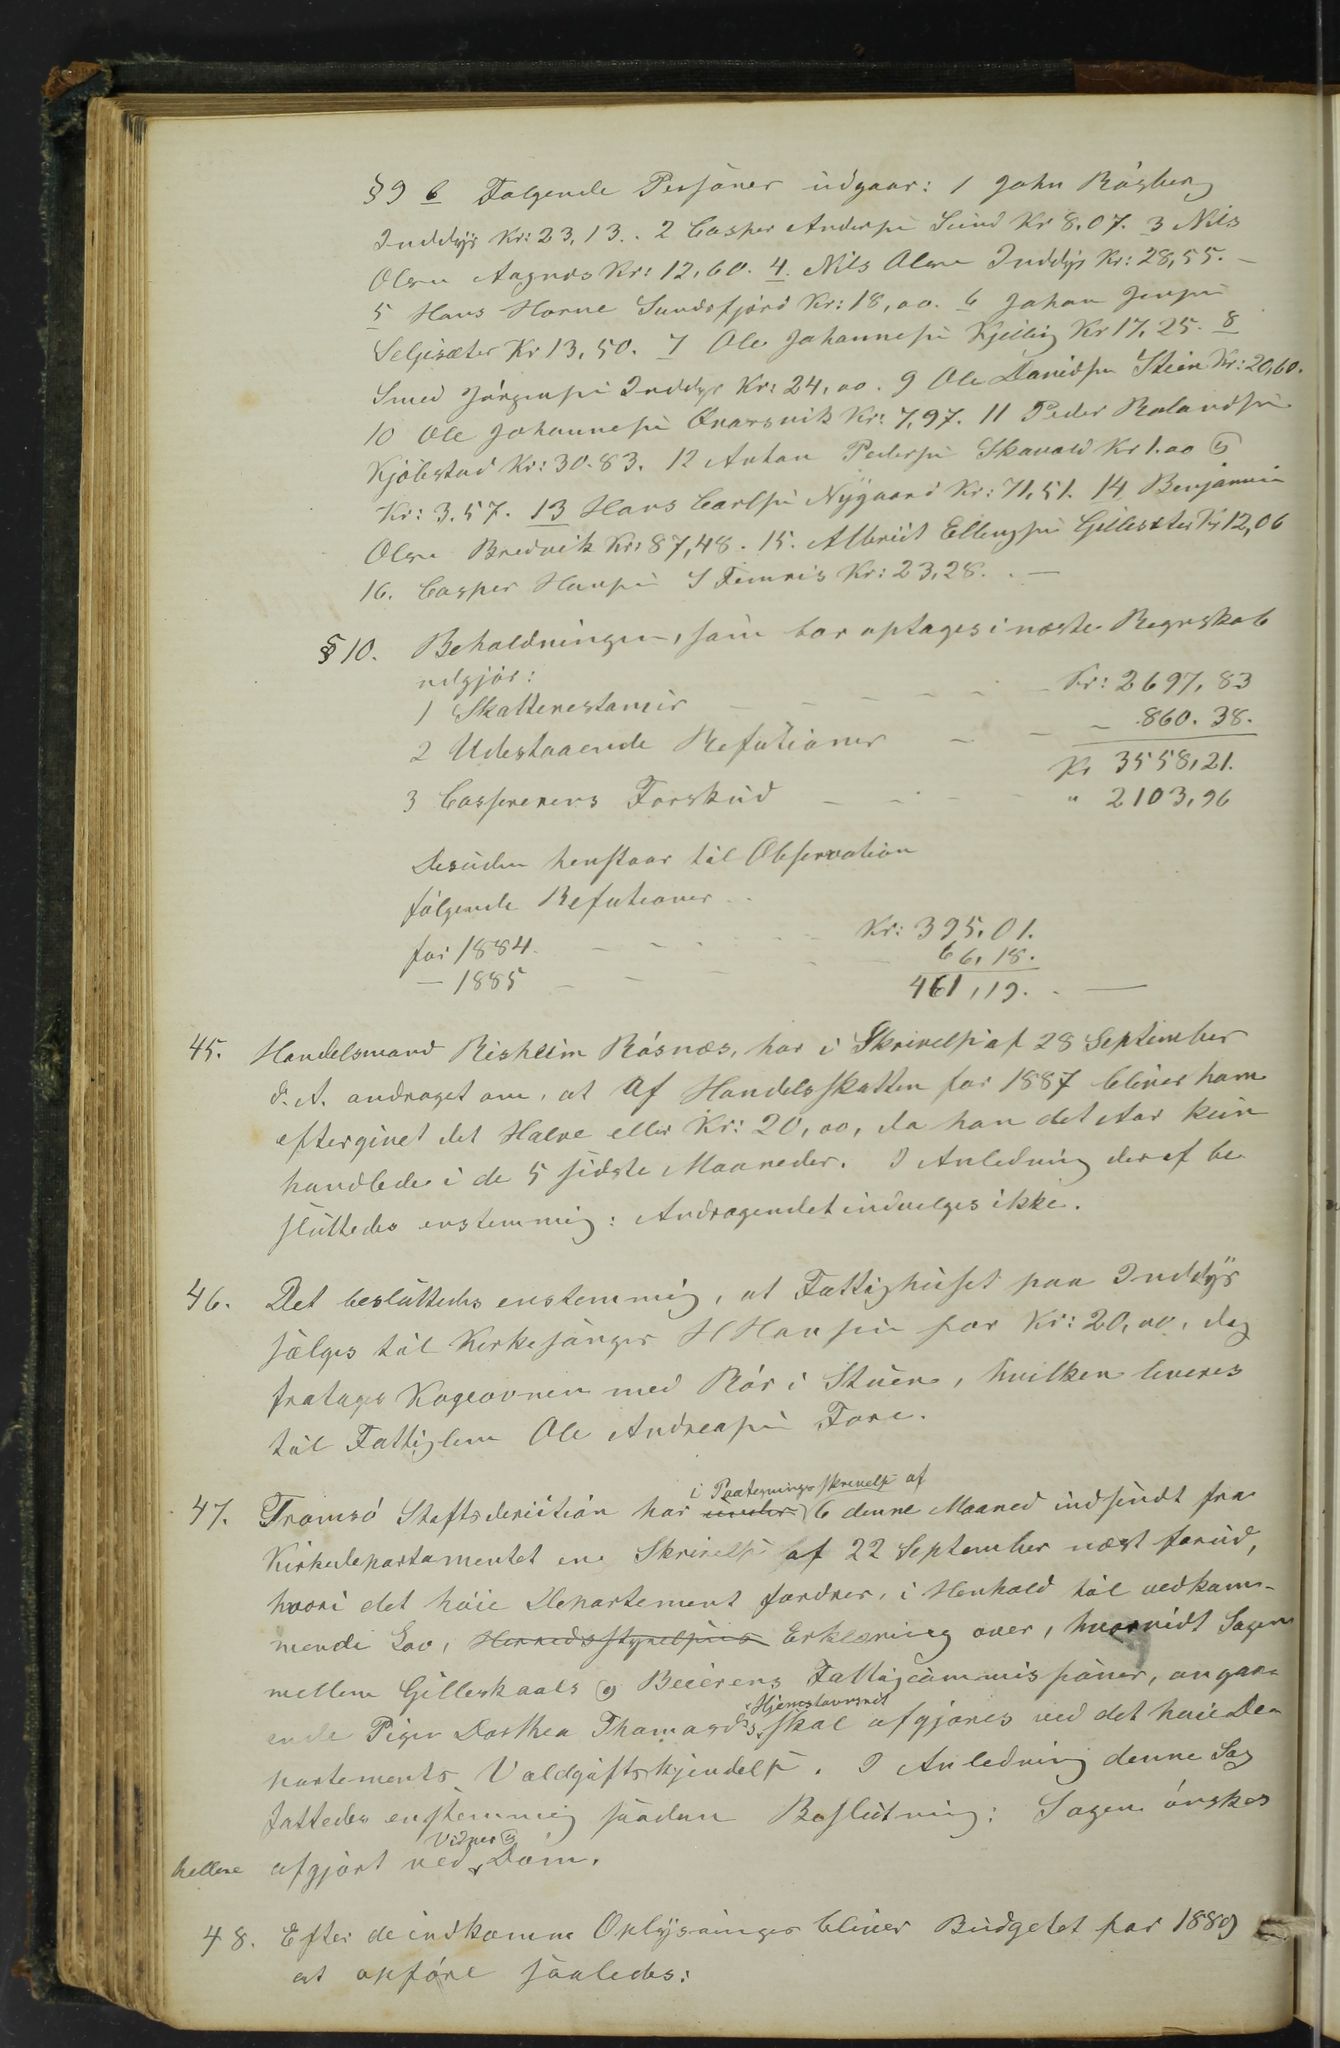 § 9 6 Følgende Personer udgaar: 1 John Råsberg
Inddyr Kr: 23,13. 2 Casper Andersen Sund Kr 8,07. 3 Nils
Olsen Aagnes Kr: 12,60. 4. Nils Olsen Inddyr Kr: 28,55. —
5 Hans Horne Sundsfjord Kr: 18,00. 6 Johan Jensen
Seljesæter Kr 13,50. 7 Ole Johannesen Kjelling Kr 17,25. 8
Smed Jørgensen Inddyr Kr: 24,00. 9 Ole Danielsen Stein Kr: 20,60.
10 Ole Johannesen Qvarsvik Kr: 7,97. 11 Peder Rolandsen
Kjøbstad Kr: 30.83. 12 Anton Pedersen Skavold Kr 1.00 og
Kr: 3.57. 13 Hans Carlsen Nygaard Kr: 71,51. 14 Benjamin
Olsen Bredvik Kr: 87,48. 15. Albrigt Ellingsen Gillesæter Kr 12,06
16. Casper Hansen Kr: 23,28. —
§ 10. Beholdningen, som bør optages i næste Regnskab
udgjør:
1 Skatterestancer - - - - Kr: 2697,83
2 Udestaaende Refutioner - - - 860.38.
Kr 3558,21.
3 Cassererens Forskud - - - " 2103,96
Desuden henstaar til Observation
følgende Refutioner
for 1884. - - - - Kr: 395,01.
— 1885 - - - - 66,18.
461,19. —
45. Handelsmand Risheim Råsnæs, har i Skrivelse af 28 September
d. A. andraget om, at Af Handelsskatten for 1887 bliver ham
eftergivet det Halve eller Kr: 20,00, da han det Aar kun
handlede i de 5 sidste Maaneder. I Anledning deraf be
sluttedes enstemmig: Andragendet indvilges ikke.
46. Det besluttedes enstemmig, at Fattighuset paa Inddyr
sælges til Kirkesanger H Hansen for Kr: 20,00, dog
fratages Kogeovnen med Rör i Stuen, hvilken leveres
til Fattiglem Ole Andreasen Fore.
i Paategningsskrivelse af
47. Tromsö Stiftsdirection har under 6 denne Maaned indsendt fra
Kirkedepartementet en Skrivelse af 22 September næst forud,
hvori det høie Departement fordrer, i Henhold til vedkom-
mende Lov, Herredsstyrelsens Erklæring over, hvorvidt Sagen
mellem Gilleskaals og Beierens Fattigcommissioner, angaa-
Hjemstavnsret
ende Pigen Dorthea Thomasd's skal afgjøres ved det høie De-
partements Voldgiftskjendelse. I Anledning denne Sag
fattedes enstemmig saadan Beslutning: Sagen ønskes
Vidner og
hellere afgjort ved Dom.
48. Efter de indkomne Oplysninger bliver Budgetet for 1889
at opføre saaledes: